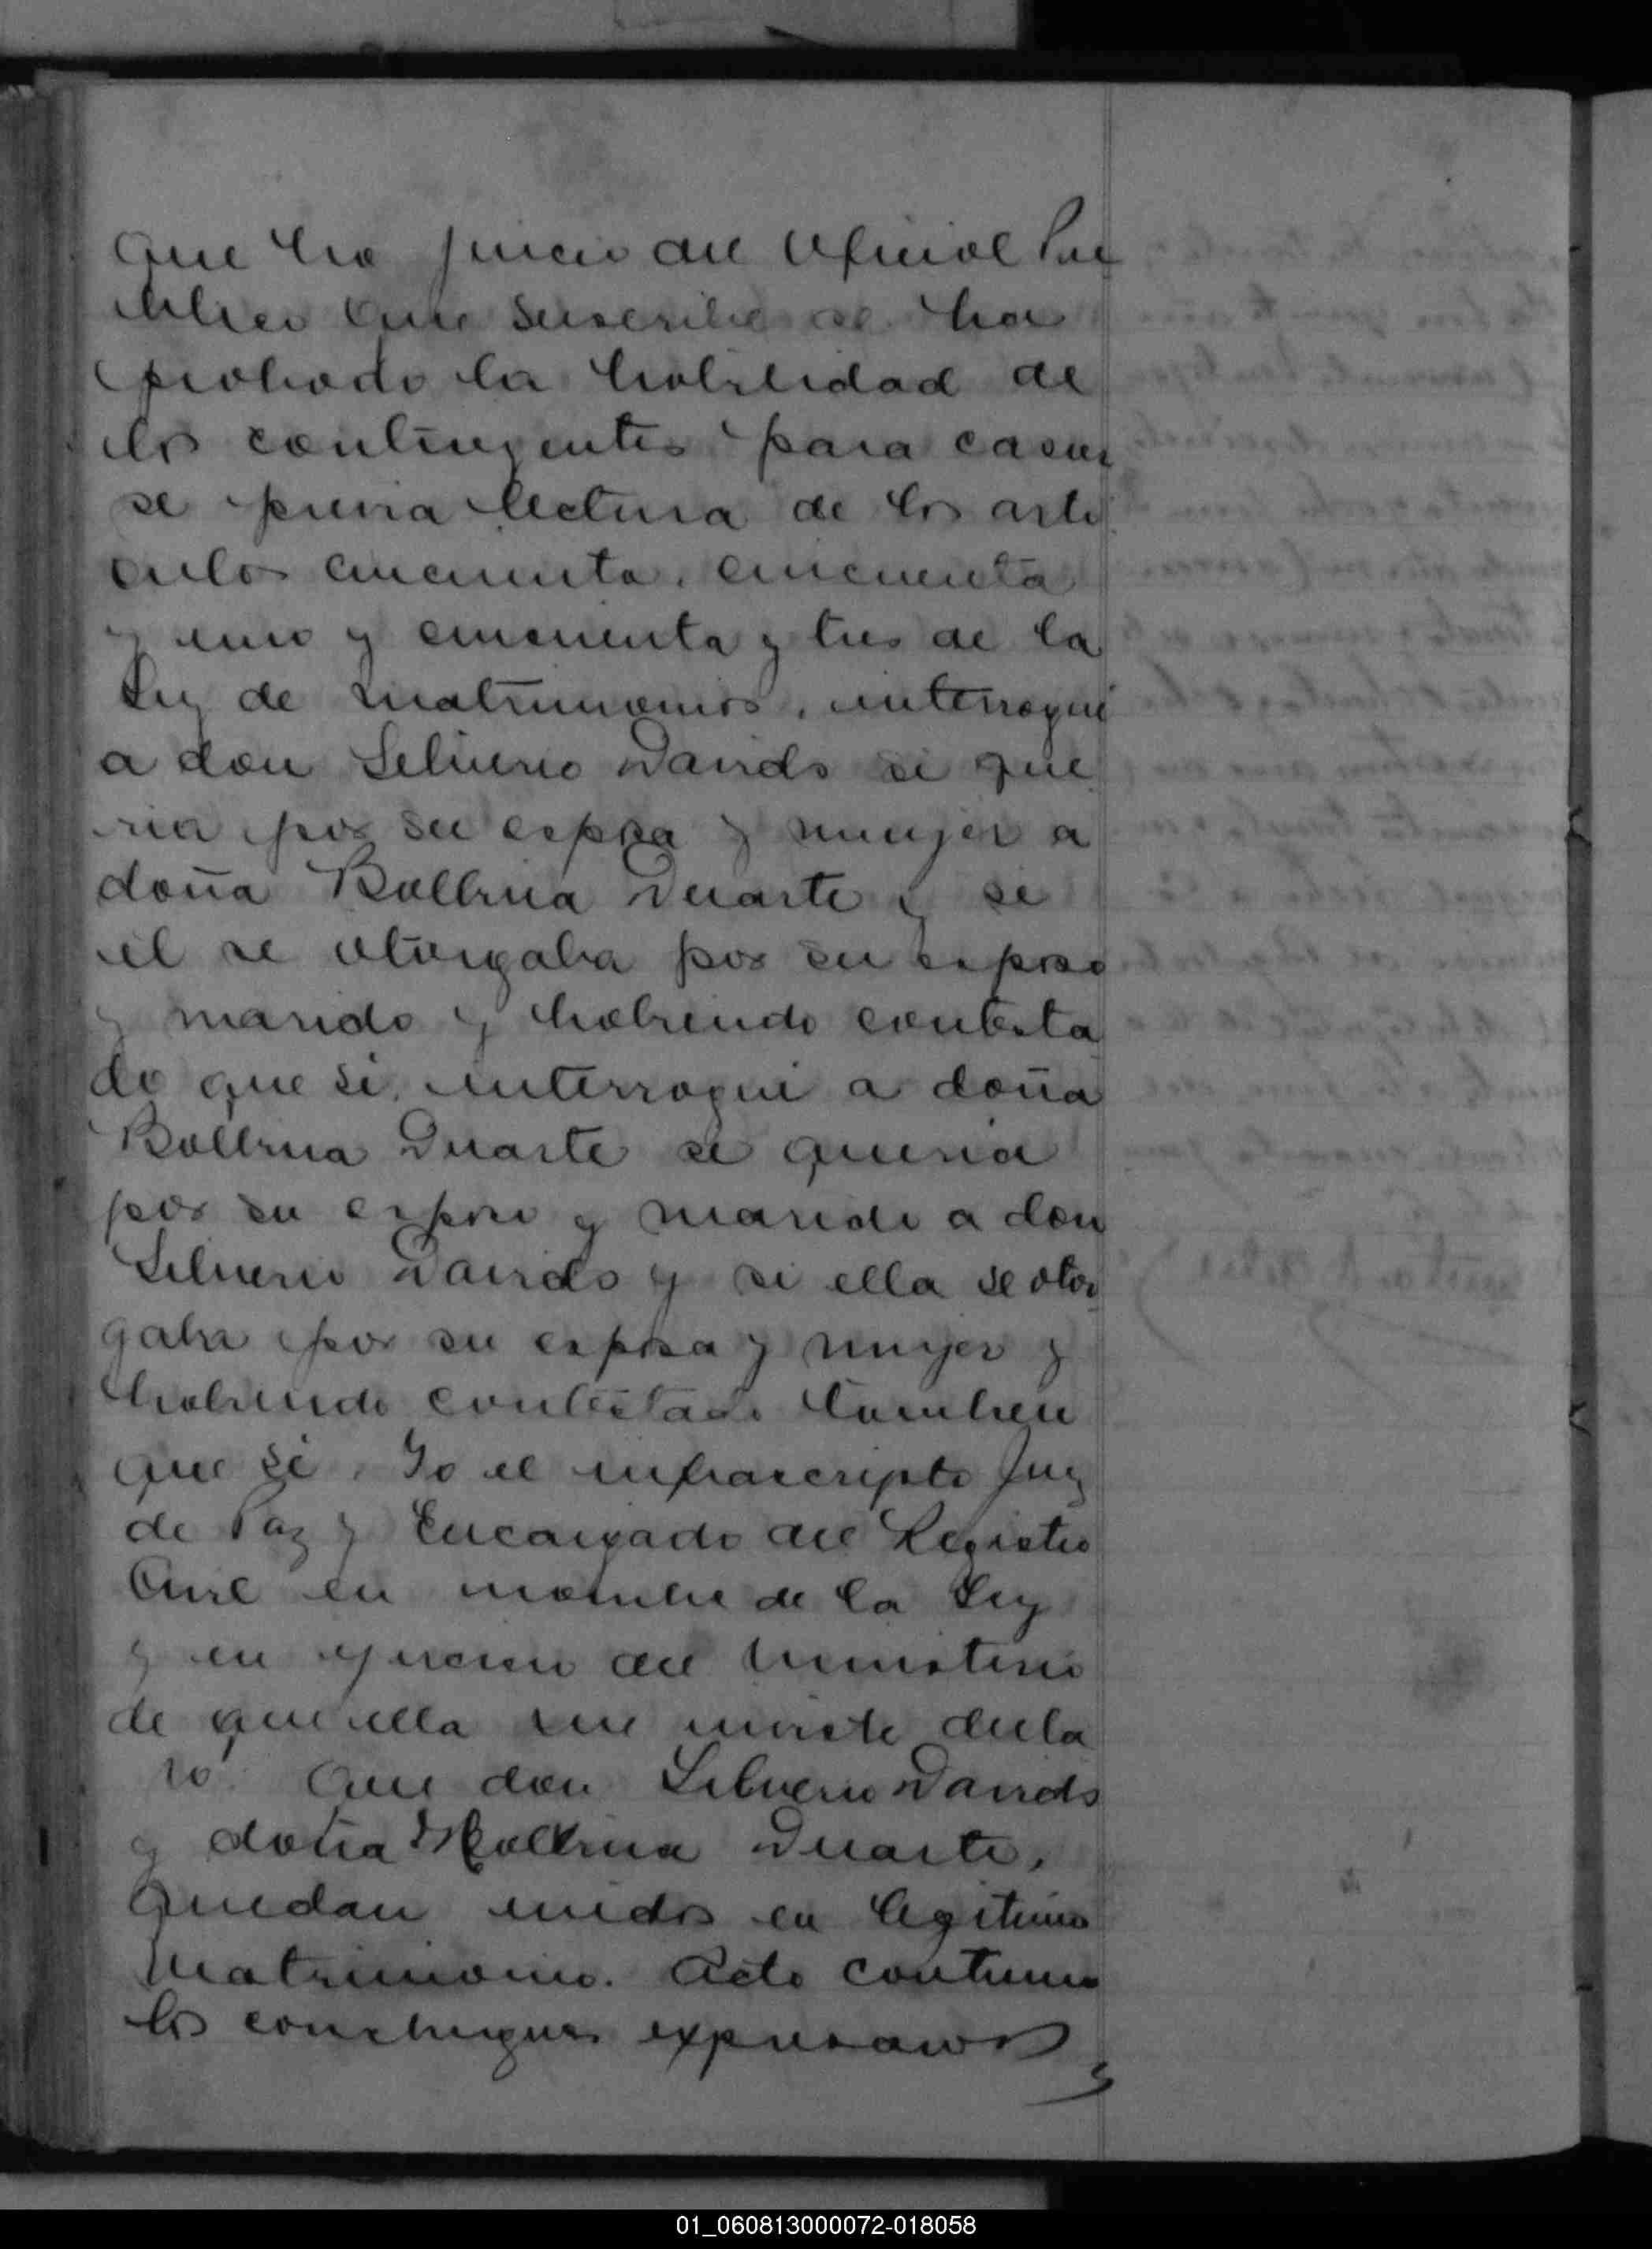 que ha juicio del Oficial Pu
blico que suscribe se ha
probado la habilidad de
los contingentes para casar
se previa lectura de los arti
culos cincuenta, cincuenta
y uno y cincuenta y tres de la
Ley de Matrimonios, interrogué
a don Silverio Davids si que
ria por su esposa y mujer a
doña Balbina Duarte y si
él se otorgaba por su esposo
y marido y habiendo contesta
do que si, interrogué a doña
Balbina Duarte si queria
por su esposo y marido a don
Silverio Davids y si ella se otor
gaba por su esposa y mujer y
habiendo contestado tambien
que si, Yo el infrascripto Juez
de Paz y Encargado del Registro
Civil en nombre de la Ley
y en ejercicio del Ministerio
de que ella me inviste decla
ró: Que don Silverio Davids
y doña Balbina Duarte,
quedan unidos en legitimo
Matrimonio. Acto continuo
los conyugues expresaron
01_060813000072-018058